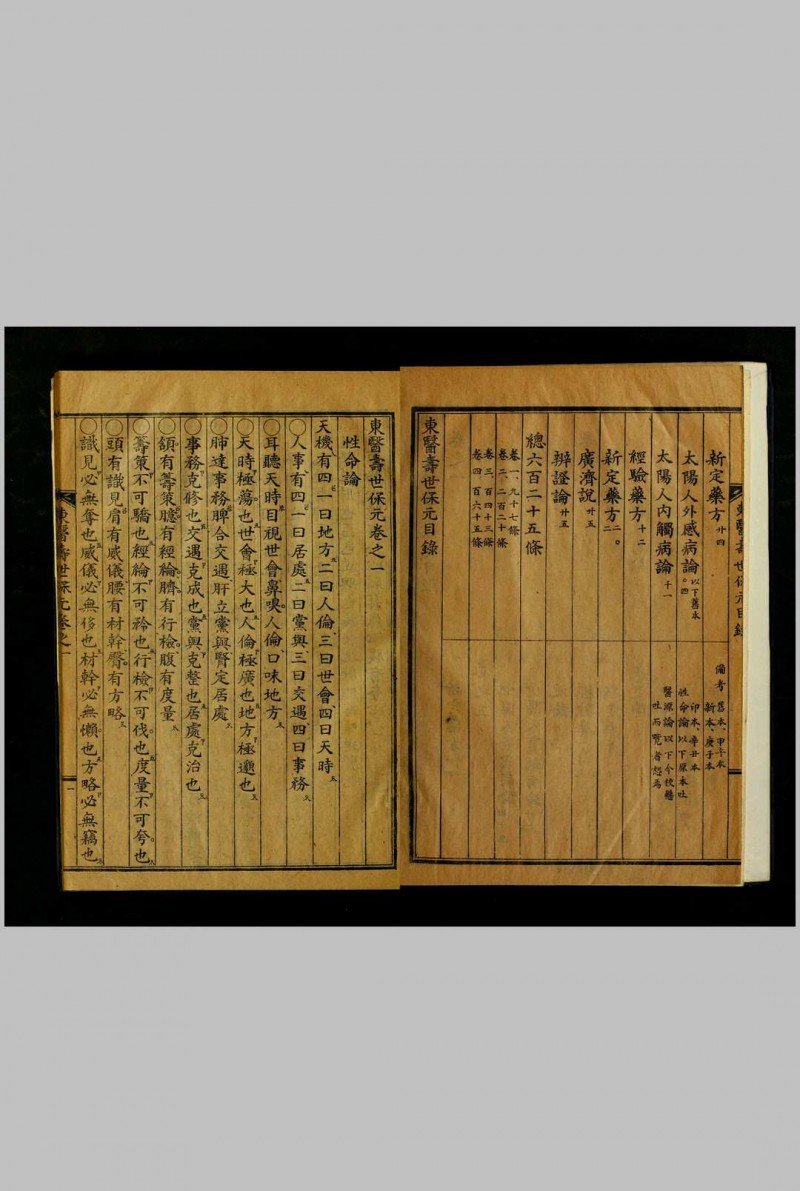 新定藥方 廿四
太陽人外感病論 以下舊本 四
太陽人內觸病論 十一
經驗藥方 十二
新定藥方 二
廣濟說 廿五
辨證論 廿五
總六百二十五條
卷一、九十七條
卷二、二百二十條
卷三、百四十三條
卷四、百六十五條
東醫壽世保元目錄
備考 舊本、甲午本
新本、庚子本
印本、辛丑本
性命論以下原本吐
醫源論以下今校懸
吐而覽者恕焉
東醫壽世保元目錄
東醫壽世保元卷之一
性命論
天機有四一曰地方二曰人倫三曰世會四曰天時
〇人事有四一曰居處二曰黨與三曰交遇四曰事務
〇耳聽天時目視世會鼻嗅人倫口味地方
〇天時極蕩也世會極大也人倫極廣也地方極邈也
〇肺達事務脾合交遇肝立黨與腎定居處
〇事務克修也交遇克成也黨與克整也居處克治也
〇頷有籌策臆有經綸臍有行檢腹有度量
〇籌策不可驕也經綸不可矜也行檢不可伐也度量不可夸也
〇頭有識見肩有威儀腰有材幹臀有方略
〇識見必無奪也威儀必無侈也材幹必無懶也方略必無竊也
東醫壽世保元卷之一
一